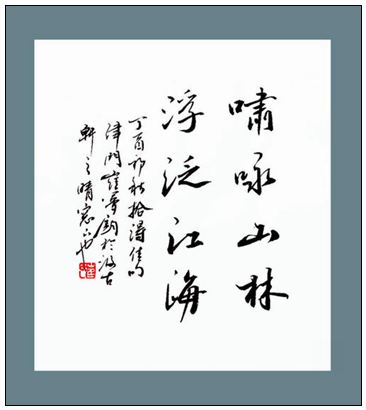 嘯咏山林
浮泛江海
丁酉初秋拾得佳句
津門崔寶鈞於汲古
軒之晴窓下也